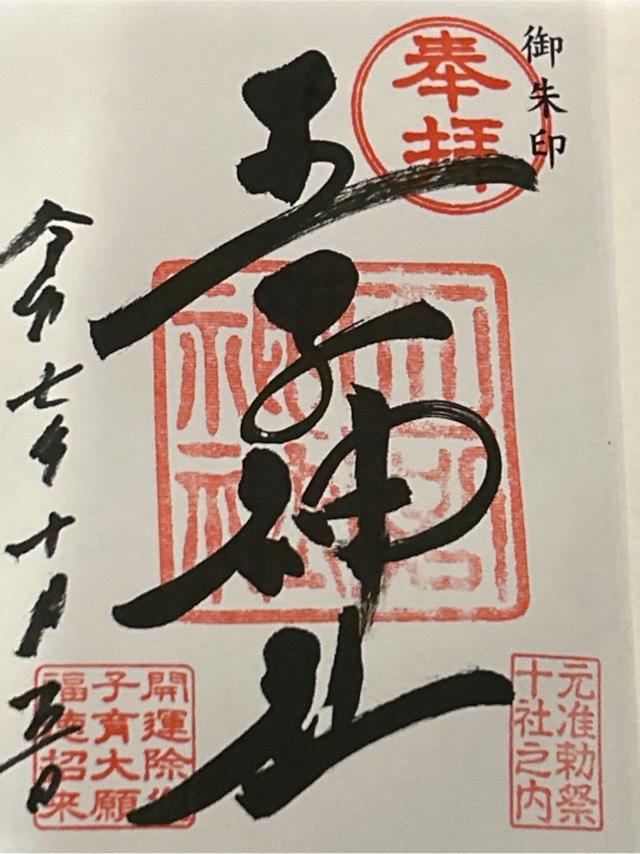 御朱印
奉拝
王子神社
元准勅祭
十社之内
開運除
子育大願
福徳招来
令和七年十月五日